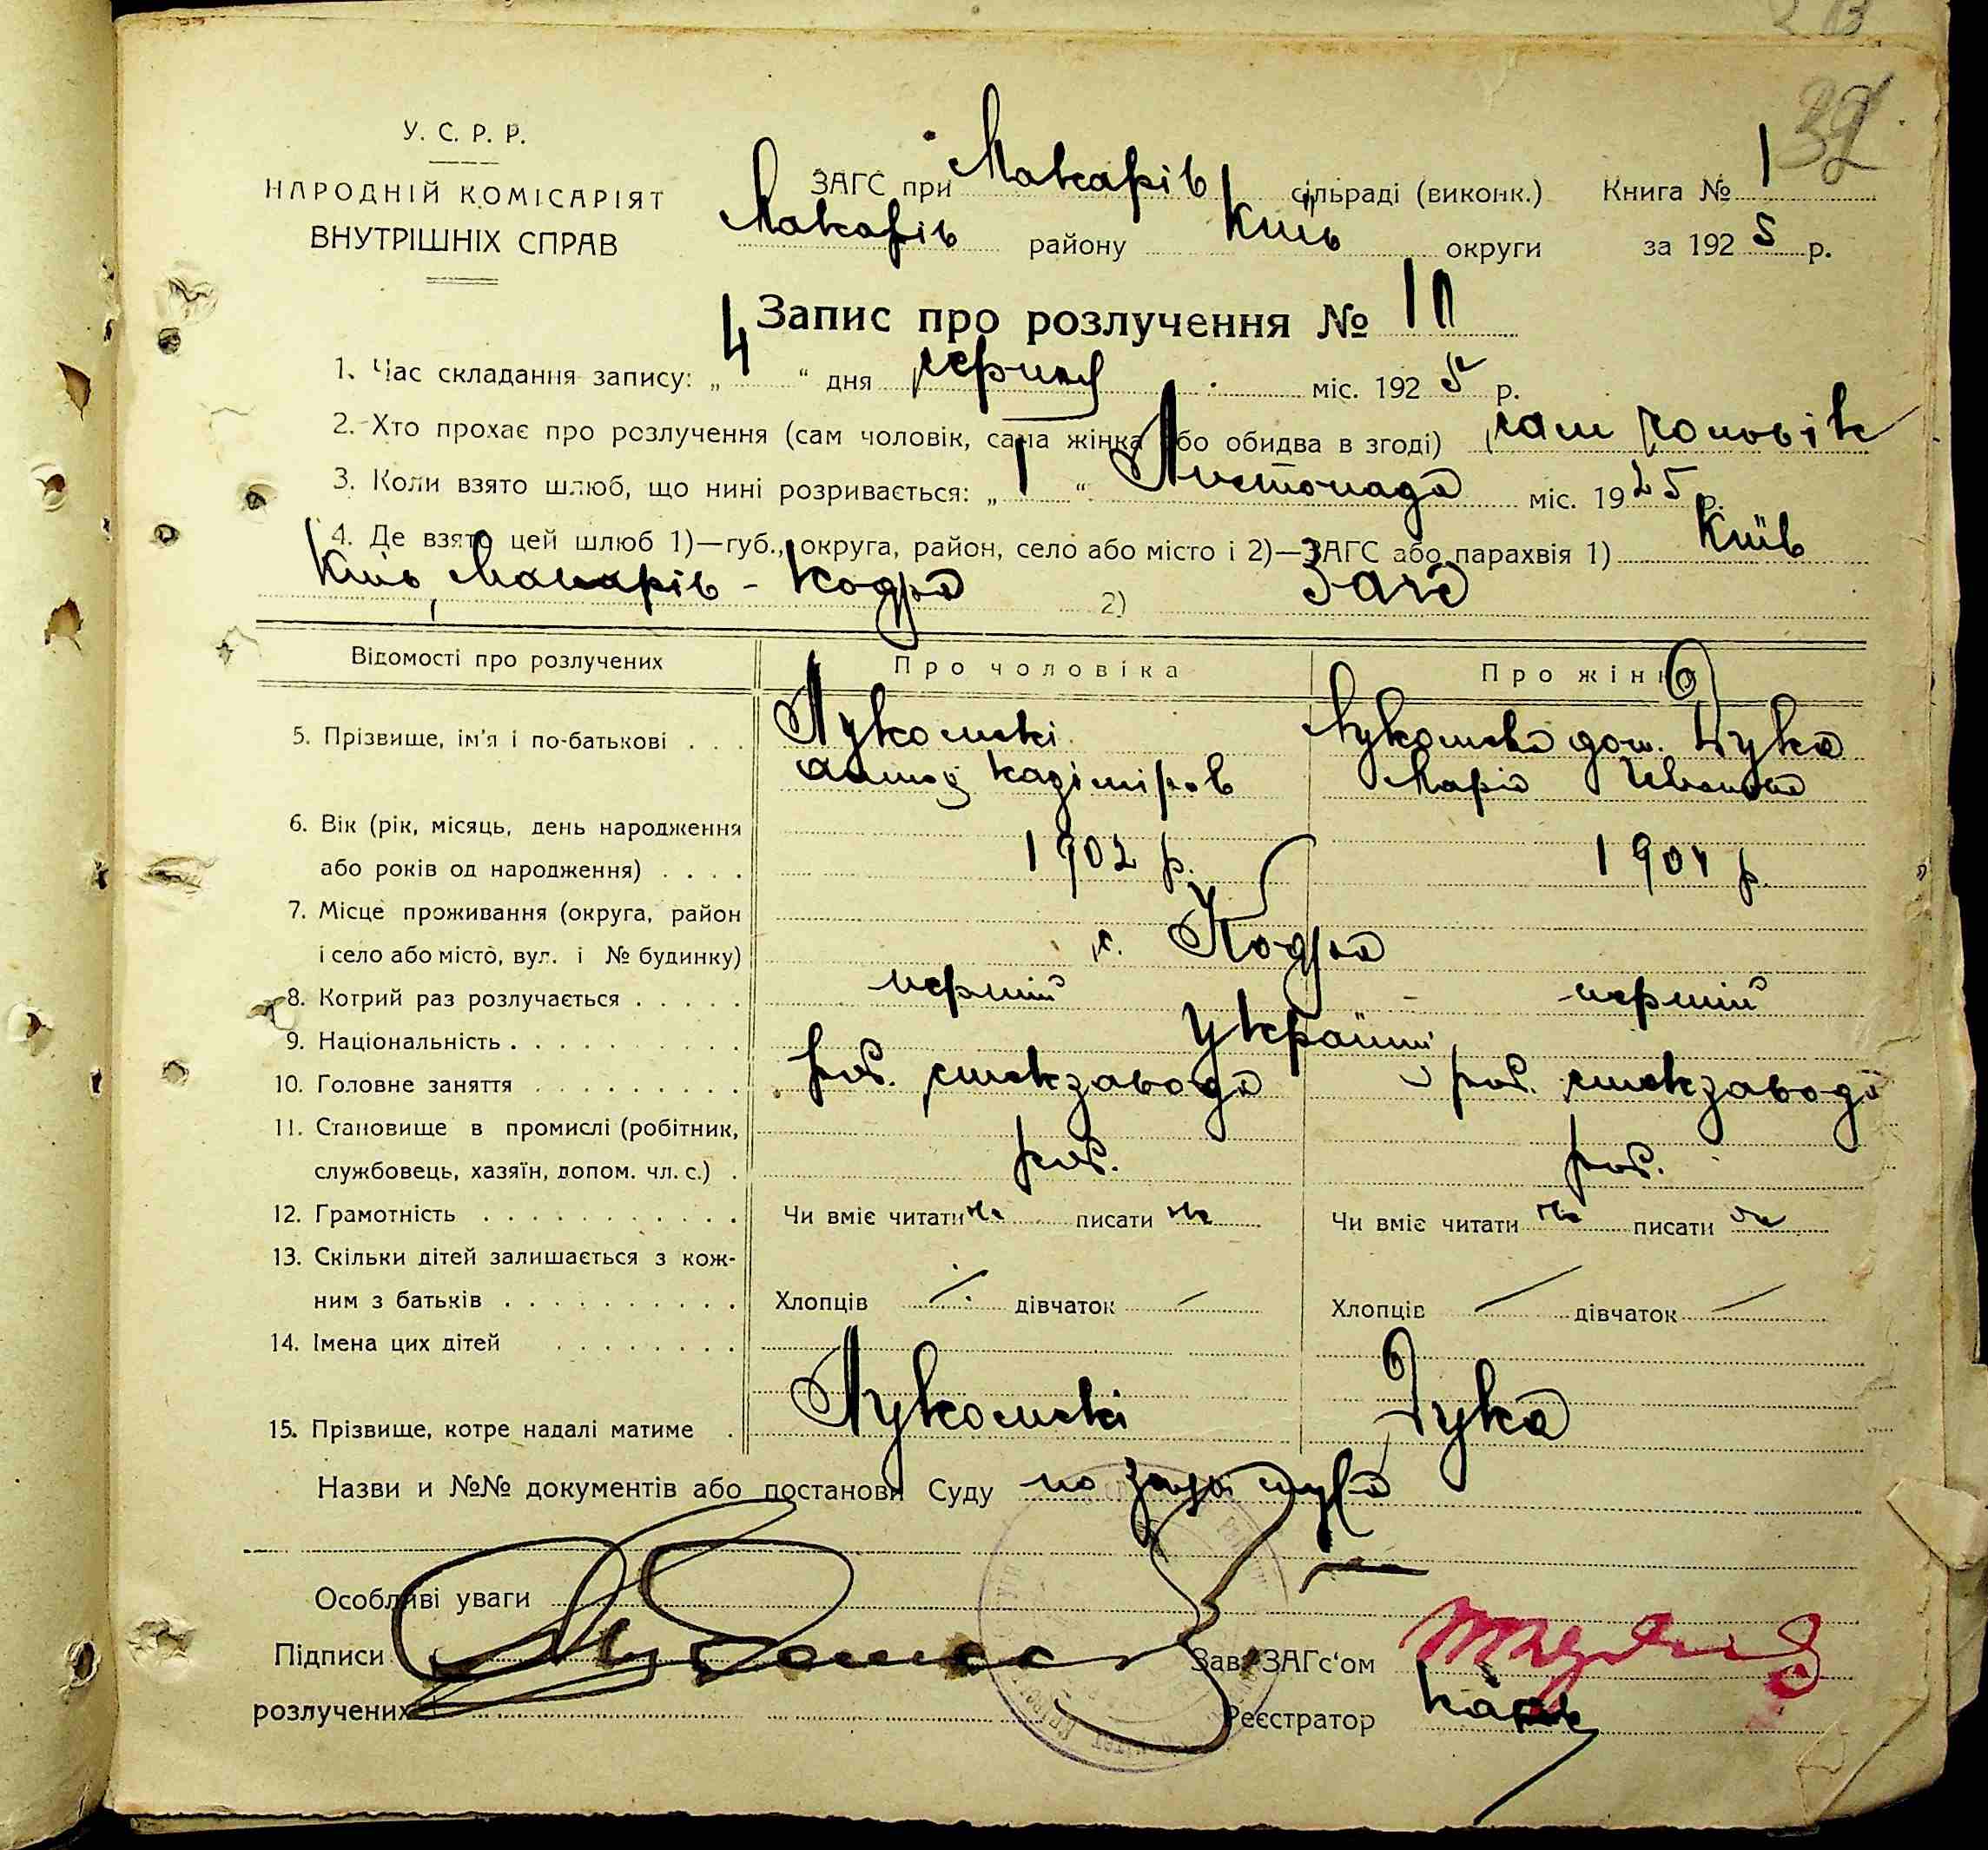 39
У. С. Р. Р.
НАРОДНІЙ КОМІСАРІЯТ
ВНУТРІШНІХ СПРАВ
ЗАГС при Макарів сільраді (виконк.) Книга № 1
Макарів району Київ округи за 1925 р.
Запис про розлучення № 10
1. Час складання запису: „4“ дня серпня міс. 1925 р.
2. Хто прохає про розлучення (сам чоловік, сама жінка або обидва в згоді) сам чоловік
3. Коли взято шлюб, що нині розривається: „1“ Листопада міс. 1925 р.
4. Де взято цей шлюб 1)—губ., округа, район, село або місто і 2)—ЗАГС або парахвія 1) Київ
Київ, Макарів - Кодра 2) Загс
Відомості про розлучених Про чоловіка Про жінку
5. Прізвище, ім'я і по-батькові . . . Лукомскі Лукомска дош. Дука
Казіміров Марія Іванова
6. Вік (рік, місяць, день народження
або років од народження) . . . . 1902 р. 1904 р.
7. Місце проживання (округа, район
і село або місто, вул. і № будинку) с. Кодра
8. Котрий раз розлучається . . . . . перший перший
9. Національність . . . . . . . . . . Україн
10. Головне заняття . . . . . . . . . роб. стекзавода роб. стекзавода
11. Становище в промислі (робітник,
службовець, хазяїн, допом. чл. с.) . роб. роб.
12. Грамотність . . . . . . . . . . . Чи вміє читати писати Чи вміє читати писати
13. Скільки дітей залишається з кож-
ним з батьків . . . . . . . . . . Хлопців — дівчаток — Хлопців — дівчаток —
14. Імена цих дітей . . . . . . . .
15. Прізвище, котре надалі матиме . Лукомскі Дука
Назви и №№ документів або постанови Суду по заяві
Особливі уваги
Підписи Зав. ЗАГс'ом
розлучених Реєстратор